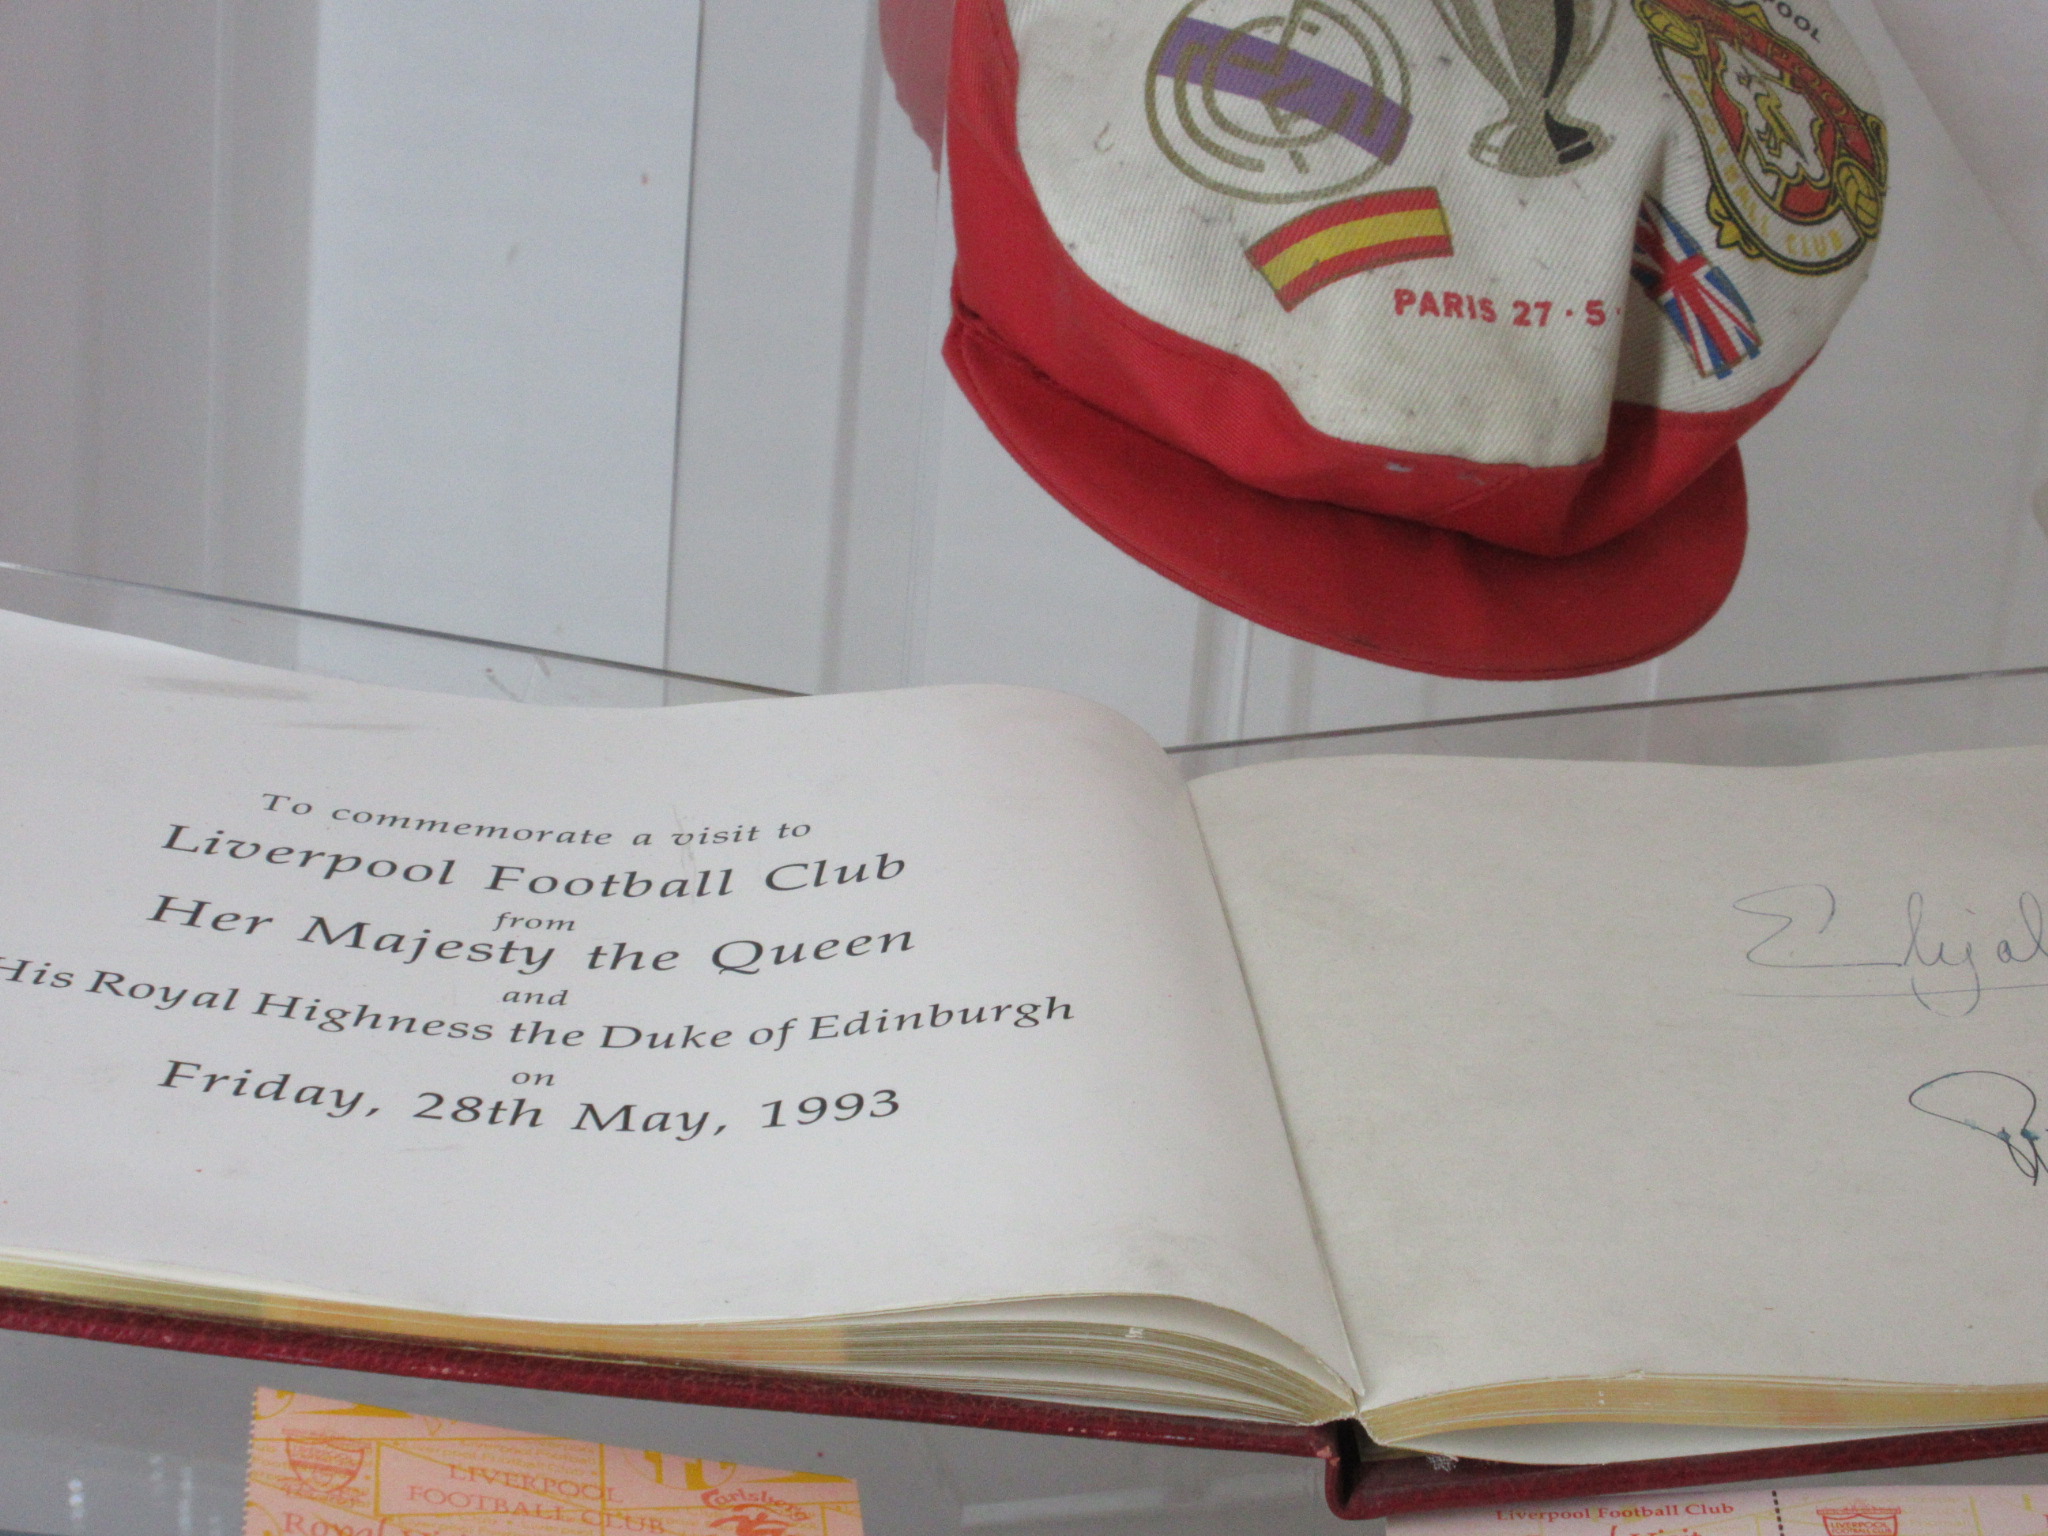 POOL
FOOTBALL CLUB
PARIS 27·5·
To commemorate a visit to
Liverpool Football Club
from
Her Majesty the Queen
and
His Royal Highness the Duke of Edinburgh
on
Friday, 28th May, 1993
LIVERPOOL
FOOTBALL CLUB
Carlsberg
Royal
Liverpool Football Club
Visit